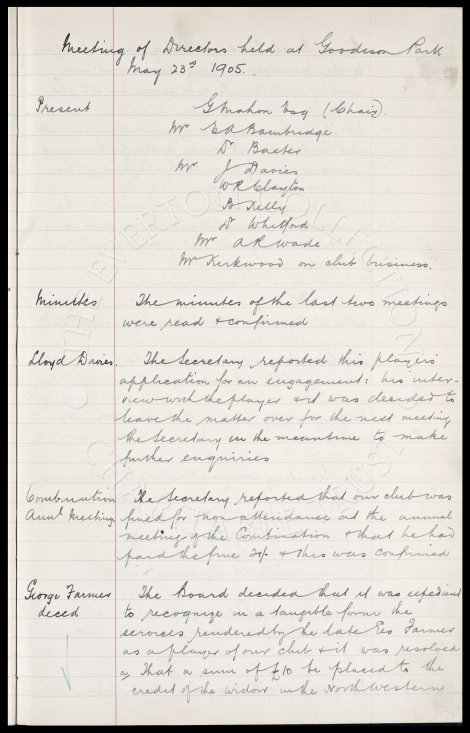 Meeting of Directors held at Goodison Park
May 23rd 1905.
Present G Mahon Esq (Chair).
Mr E A Bainbridge
Dr Baxter
Mr J Davies
W R Clayton
B Kelly
Dr Whitford
Mr A R Wade
Mr Kirkwood on club business.
Minutes The minutes of the last two meetings
were read & confirmed
Lloyd Davies. The Secretary reported this player's
application for an engagement: his inter-
view with the player & it was decided to
leave the matter over for the next meeting,
the Secretary in the meantime to make
further enquiries
Combination The Secretary reported that our club was
Annl Meeting fined for non attendance at the annual
meeting of the Combination & that he had
paid the fine & this was confirmed
George Farmer The Board decided that it was expedient
deced to recognize in a tangible form the
services rendered by the late Geo Farmer
as a player of our club & it was resolved
That a sum of £10 be placed to the
credit of the widow in the North Western
EVERTON COLLECTION